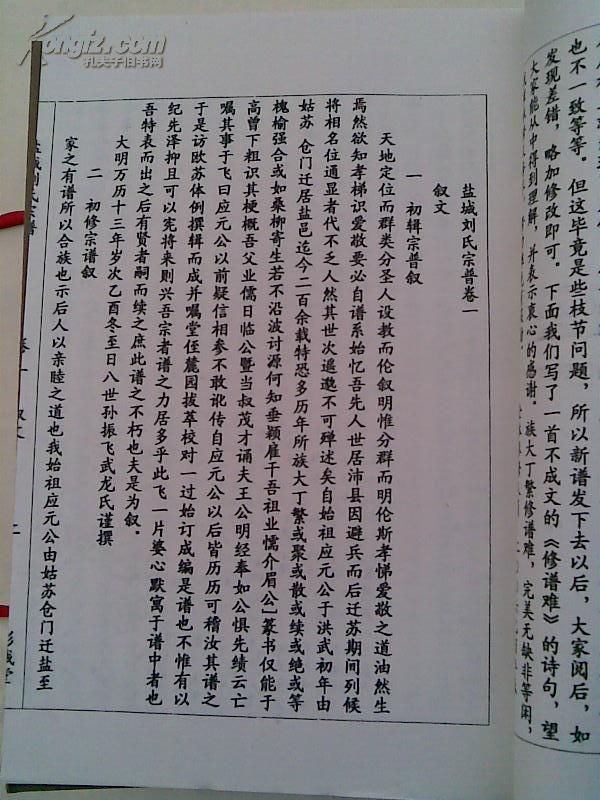 也不一致等等。但这毕竟是些枝节问题，所以新谱发下去以后，大家阅后，如
发现差错，略加修改即可。下面我们写了一首不成文的《修谱难》的诗句，望
大家能从中得到理解，并表示衷心的感谢。
族大丁繁修谱难，完美无缺非等闲，
盐城刘氏宗普卷一
叙文
一 初辑宗普叙
天地定位而群类分圣人设教而伦叙明惟分群而明伦斯孝悌爱敬之道油然生
焉然欲知孝梯识爱敬要必自谱系始忆吾先人世居沛县因避兵而后迁苏期间列候
将相名位通显者代不乏人然其世次遥邈不可殚述矣自始祖应元公于洪武初年由
姑苏 仓门迁居盐邑迄今二百余载特恐多历年所族大丁繁或聚或散或续或绝或等
槐榆强合或如桑柳寄生若不沿波讨源何知垂颖雇千吾祖业懦介眉公〕篆书仅能于
高曾下粗识其梗概吾父业儒日临公暨当叔茂才诵夫王公明经奉如公惧先绩云亡
嘱其事于飞曰应元公以前疑信相参不敢讹传自应元公以后皆历历可稽汝其谱之
于是访欧苏体例撰辑而成并嘱堂侄麓园拔萃校对一过始订成编是谱也不惟有以
纪先泽抑且可以宪将来则兴吾宗者谱之力居多乎此飞一片婆心默寓于谱中者也
吾特表而出之后有贤者嗣而续之庶此谱之不朽也夫是为叙。
大明万历十三年岁次乙酉冬至日八世孙振飞武龙氏谨撰
二 初修宗谱叙
家之有谱所以合族也示后人以亲睦之道也我始祖应元公由姑苏仓门迁盐至
卷一 叙文
二
彭城堂
kongfz.com
孔夫子旧书网